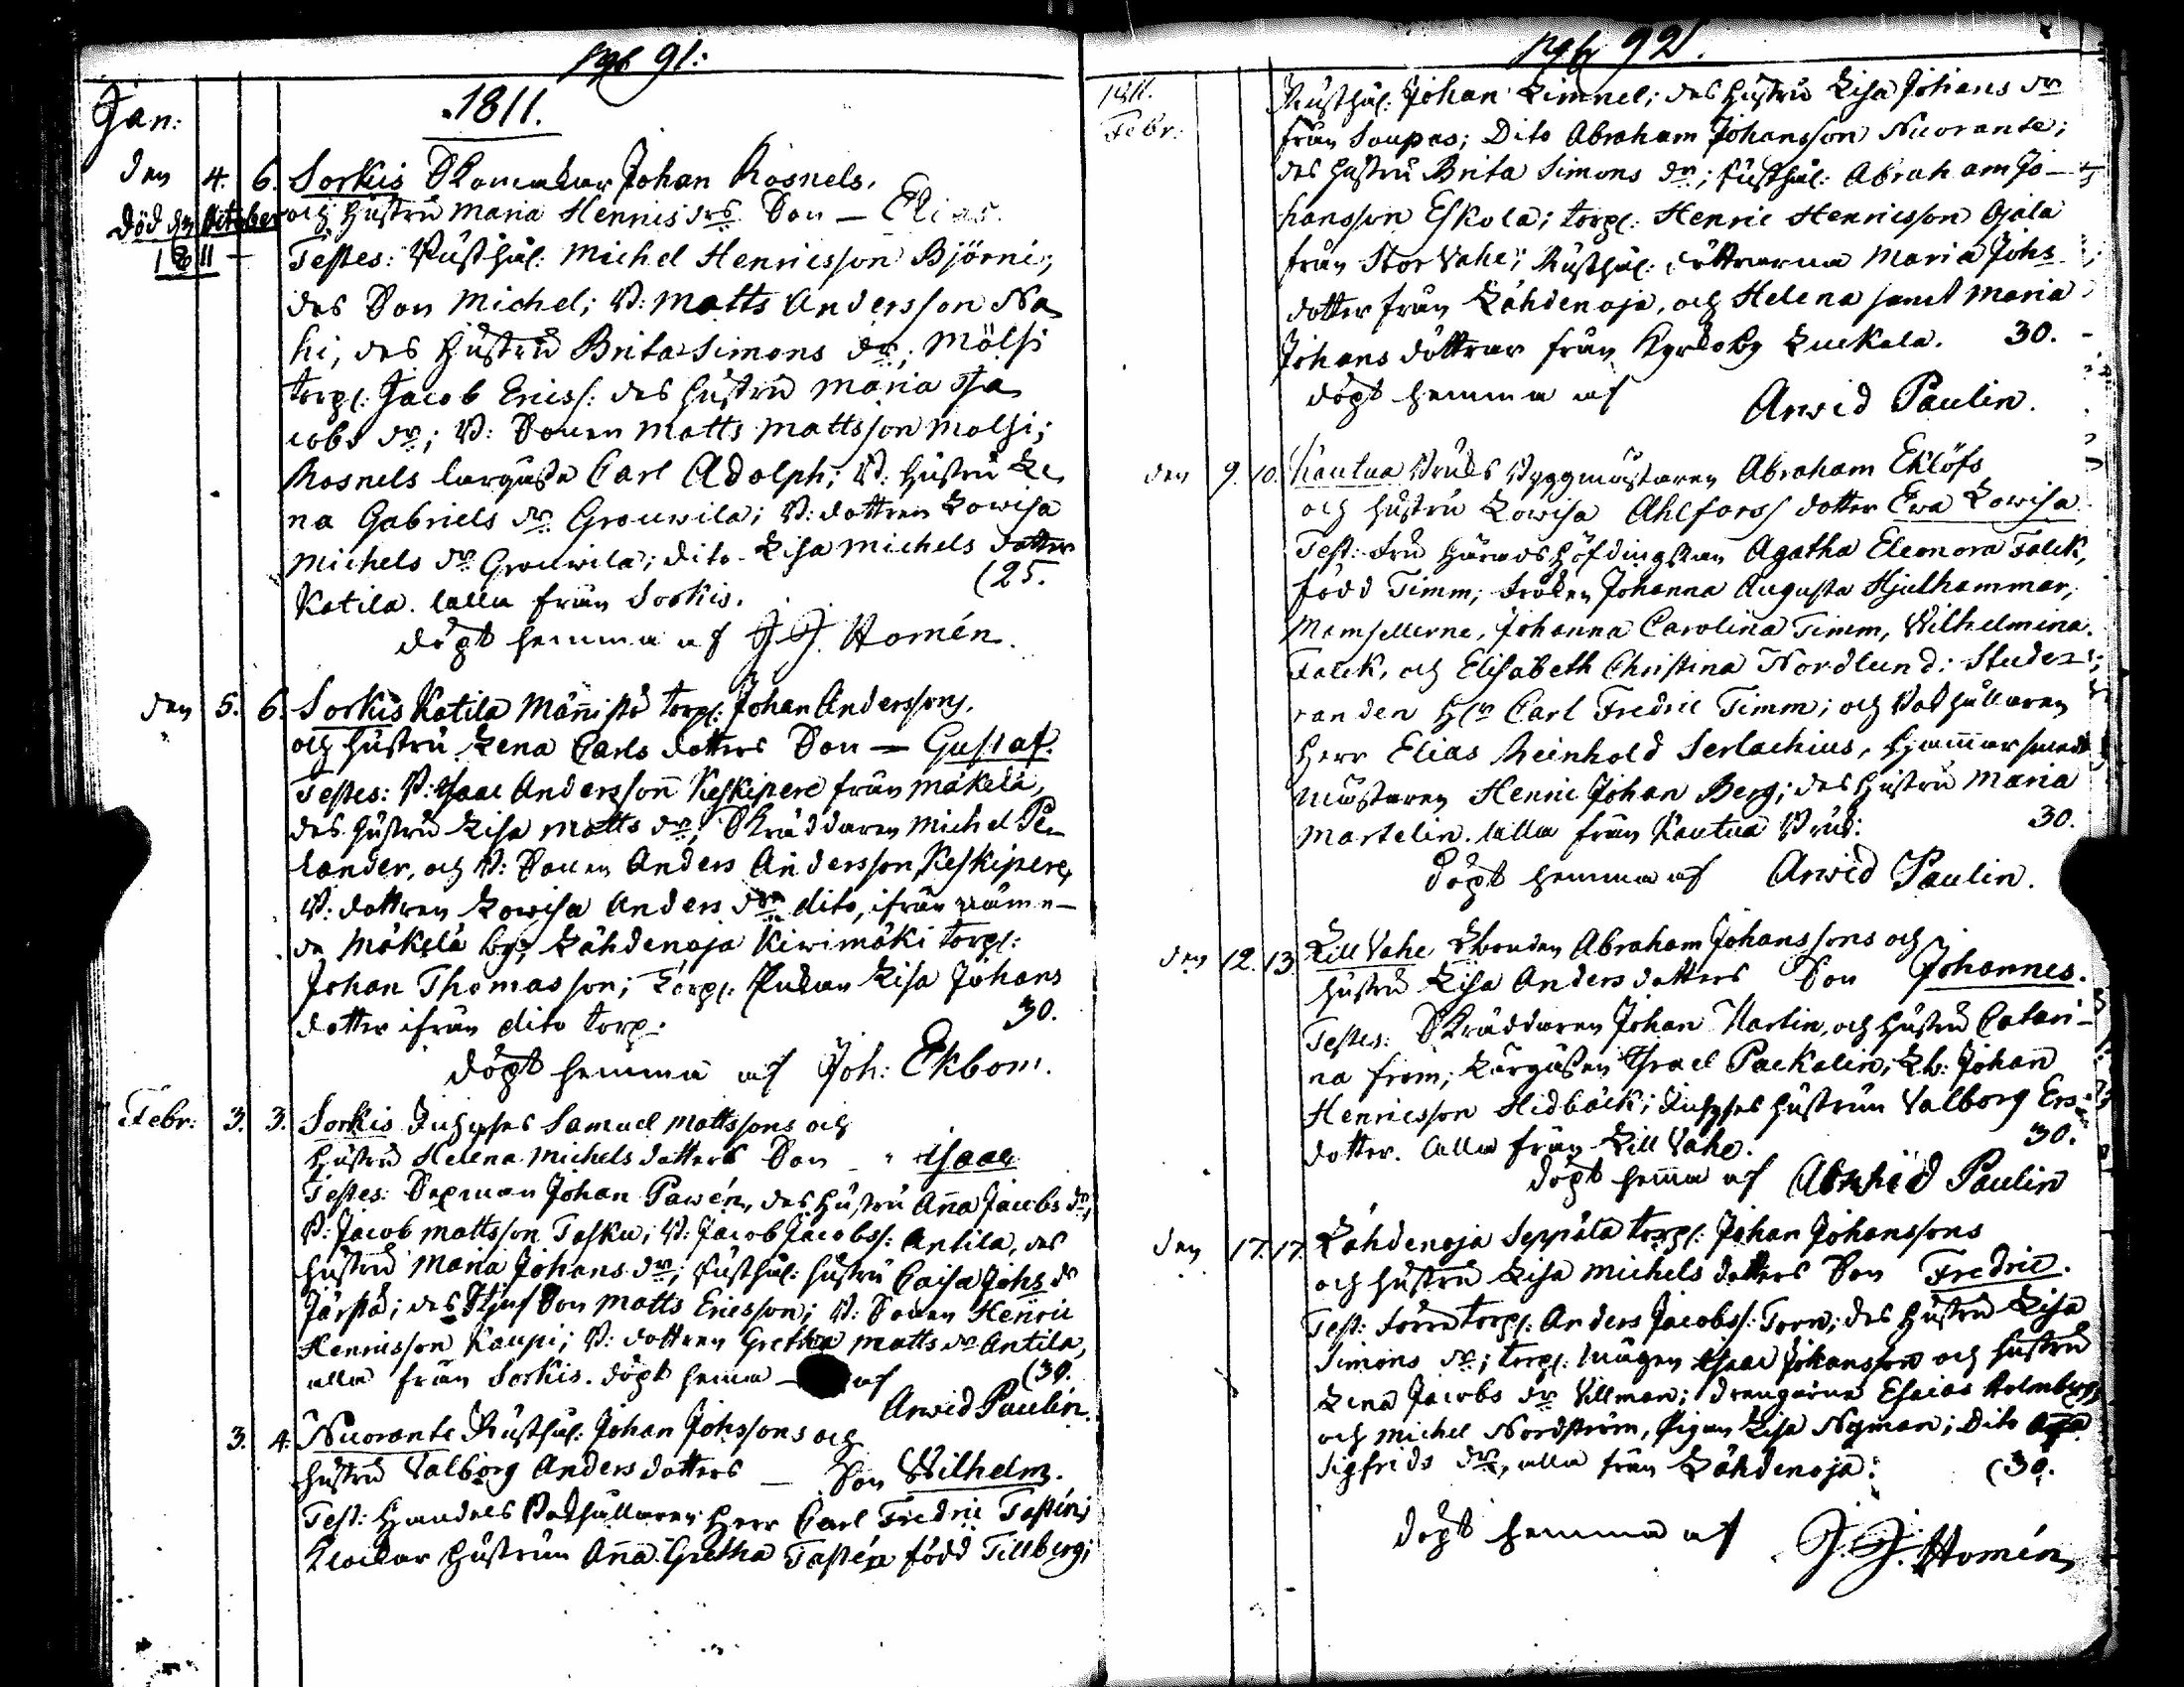 pag 91:
1811.
Jan:
den 4. 6. Sorkis Skomakar Johan Rosnels,
Död den October och Hustru Maria Henrics drs Son — Elias.
1811 — Testes: Rusthål: Michel Henricsson Björni;
des Son Michel; B: Matts Andersson Na
hi, des Hustru Brita Simons dr; Mölsi
torp: Jacob Ericss: des hustru Maria Ja
cobs dr; B: Sonen Matts Mattsson Molsi;
Rosnels lärgåsse Carl Adolph; B: hustru Le
na Gabriels dr Grouwila; B: dottren Lowisa
Michels dr Grouwila; dito Lisa Michels dotter
Katila. alla från Sorkis. (25.
döpt hemma af J. J. Homén.
den 5. 6. Sorkis Katila Männistö torp: Johan Anderssons,
och Hustru Lena Carls dotters Son — Gustaf.
Testes: B: Isaac Andersson Keskipere från Mäkelä,
des hustru Lisa Matts dr; Skräddaren Michel Pe
lander, och B: Sonen Anders Andersson Keskipere,
B: dottren Lowisa Anders dr dito, ifrån nämn-
da Mäkelä by; Lähdenoja Kiwimäki torp:
Johan Thomasson; torp: Pigan Lisa Johans
dotter ifrån dito torp: 30.
döpt hemma af Joh: Ekbom.
Febr: 3. 3. Sorkis Inhyses Samuel Mattssons och
Hustru Helena Michels dotters Son Isaac
Testes: Sexman Johan Pawén, des hustru Anna Jacobs dr,
B: Jacob Mattsson Tasku; B: Jacob Jacobss: Antila, des
hustru Maria Johans dr; Rusthål: hustru Caisa Johs dr
Järstä; des Stjuf Son Matts Ericsson; B: Sonen Henric
Henricsson Kaupi; B: dottren Gretha Matts dr Antila,
alla från Sorkis. döpt hema — af (30.
Arwid Paulin.
3. 4. Nuorante Rusthål: Johan Johssons och
hustru Valborg Anders dotters — Son Wilhelm.
Test: Handels Bokhållaren Herr Carl Fredric Tastén;
Klockar hustrun Anna Gretha Tastén född Tillberg;
pag 92.
1811.
Febr: Rusthål: Johan Limnel; des Hustru Lisa Johans dr
från Soupas; Dito Abraham Johansson Nuorante;
des hustru Brita Simons dr; Rusthål: Abraham Jo-
hansson Eskola; torp: Henric Henricsson Ojala
från Stor Vahe; Rusthål: döttrarna Maria Johs
dotter från Lähdenoja, och Helena samt Maria
Johans döttrar från Kyrkoby Luckala. 30.
döpt hemma af Arwid Paulin.
den 9. 10. Kautua Bruks Byggmästaren Abraham Eklöfs
och hustru Lowisa Ahlforss dotter Eva Lowisa
Test: Fru Häradshöfdingskan Agatha Eleonora Falck,
född Timm; Fröken Johanna Augusta Hjulhammar,
Mamsellerne, Johanna Carolina Timm, Wilhelmina
Falck, och Elisabeth Christina Nordlund: Stude-
randen Hr Carl Fredric Timm; och Bokhållaren
Herr Elias Reinhold Serlachius, Hammarsmed
mästaren Henric Johan Berg; des Hustru Maria
Martelin. alla från Kautua Bruk: 30.
döpt hemma af Arwid Paulin.
den 12. 13. Lill Vahe Lbonden Abraham Johanssons och
hustru Lisa Anders dotters Son Johannes.
Testes: Skräddaren Johan Martin, och hustru Catari-
na From; Lärgåssen Israel Packalin; Lb: Johan
Henricsson Hidbäck; Inhyses hustrun Valborg Ers
dotter. alla från Lill Vahe. 30.
döpt hema af Arwid Paulin
den 17. 17. Lähdenoja Seppälä torp: Johan Johanssons
och hustru Lisa Michels dotters Son Fredric.
Test: Förra torp: Anders Jacobss: Torn; des Hustru Lisa
Simons dr; torp: mågen Isaac Johansson och hustru
Lena Jacobs dr Villman; drengarne Esaias Holmberg,
och Michel Nordström, Pigan Lisa Nyman; Dito
Sigfrids dr, alla från Lähdenoja: (30.
döpt hemma af J. J. Homén